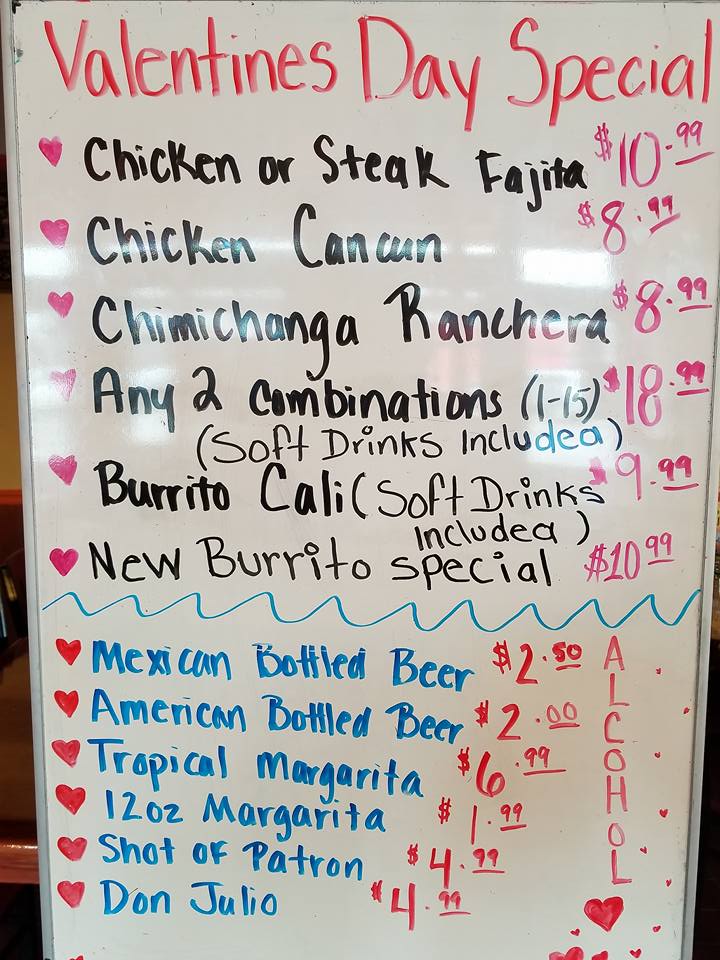 Valentines Day Special
Chicken or Steak Fajita $10.99
Chicken Cancun $8.99
Chimichanga Ranchera $8.99
Any 2 Combinations (1-15) $18.99
(Soft Drinks Includea)
Burrito Cali (Soft Drinks $9.99
Includea)
New Burrito special $10.99
Mexican Bottled Beer $2.50
American Bottled Beer $2.00
Tropical Margarita $6.99
12oz Margarita $1.99
Shot of Patron $4.99
Don Julio $4.99
ALCOHOL